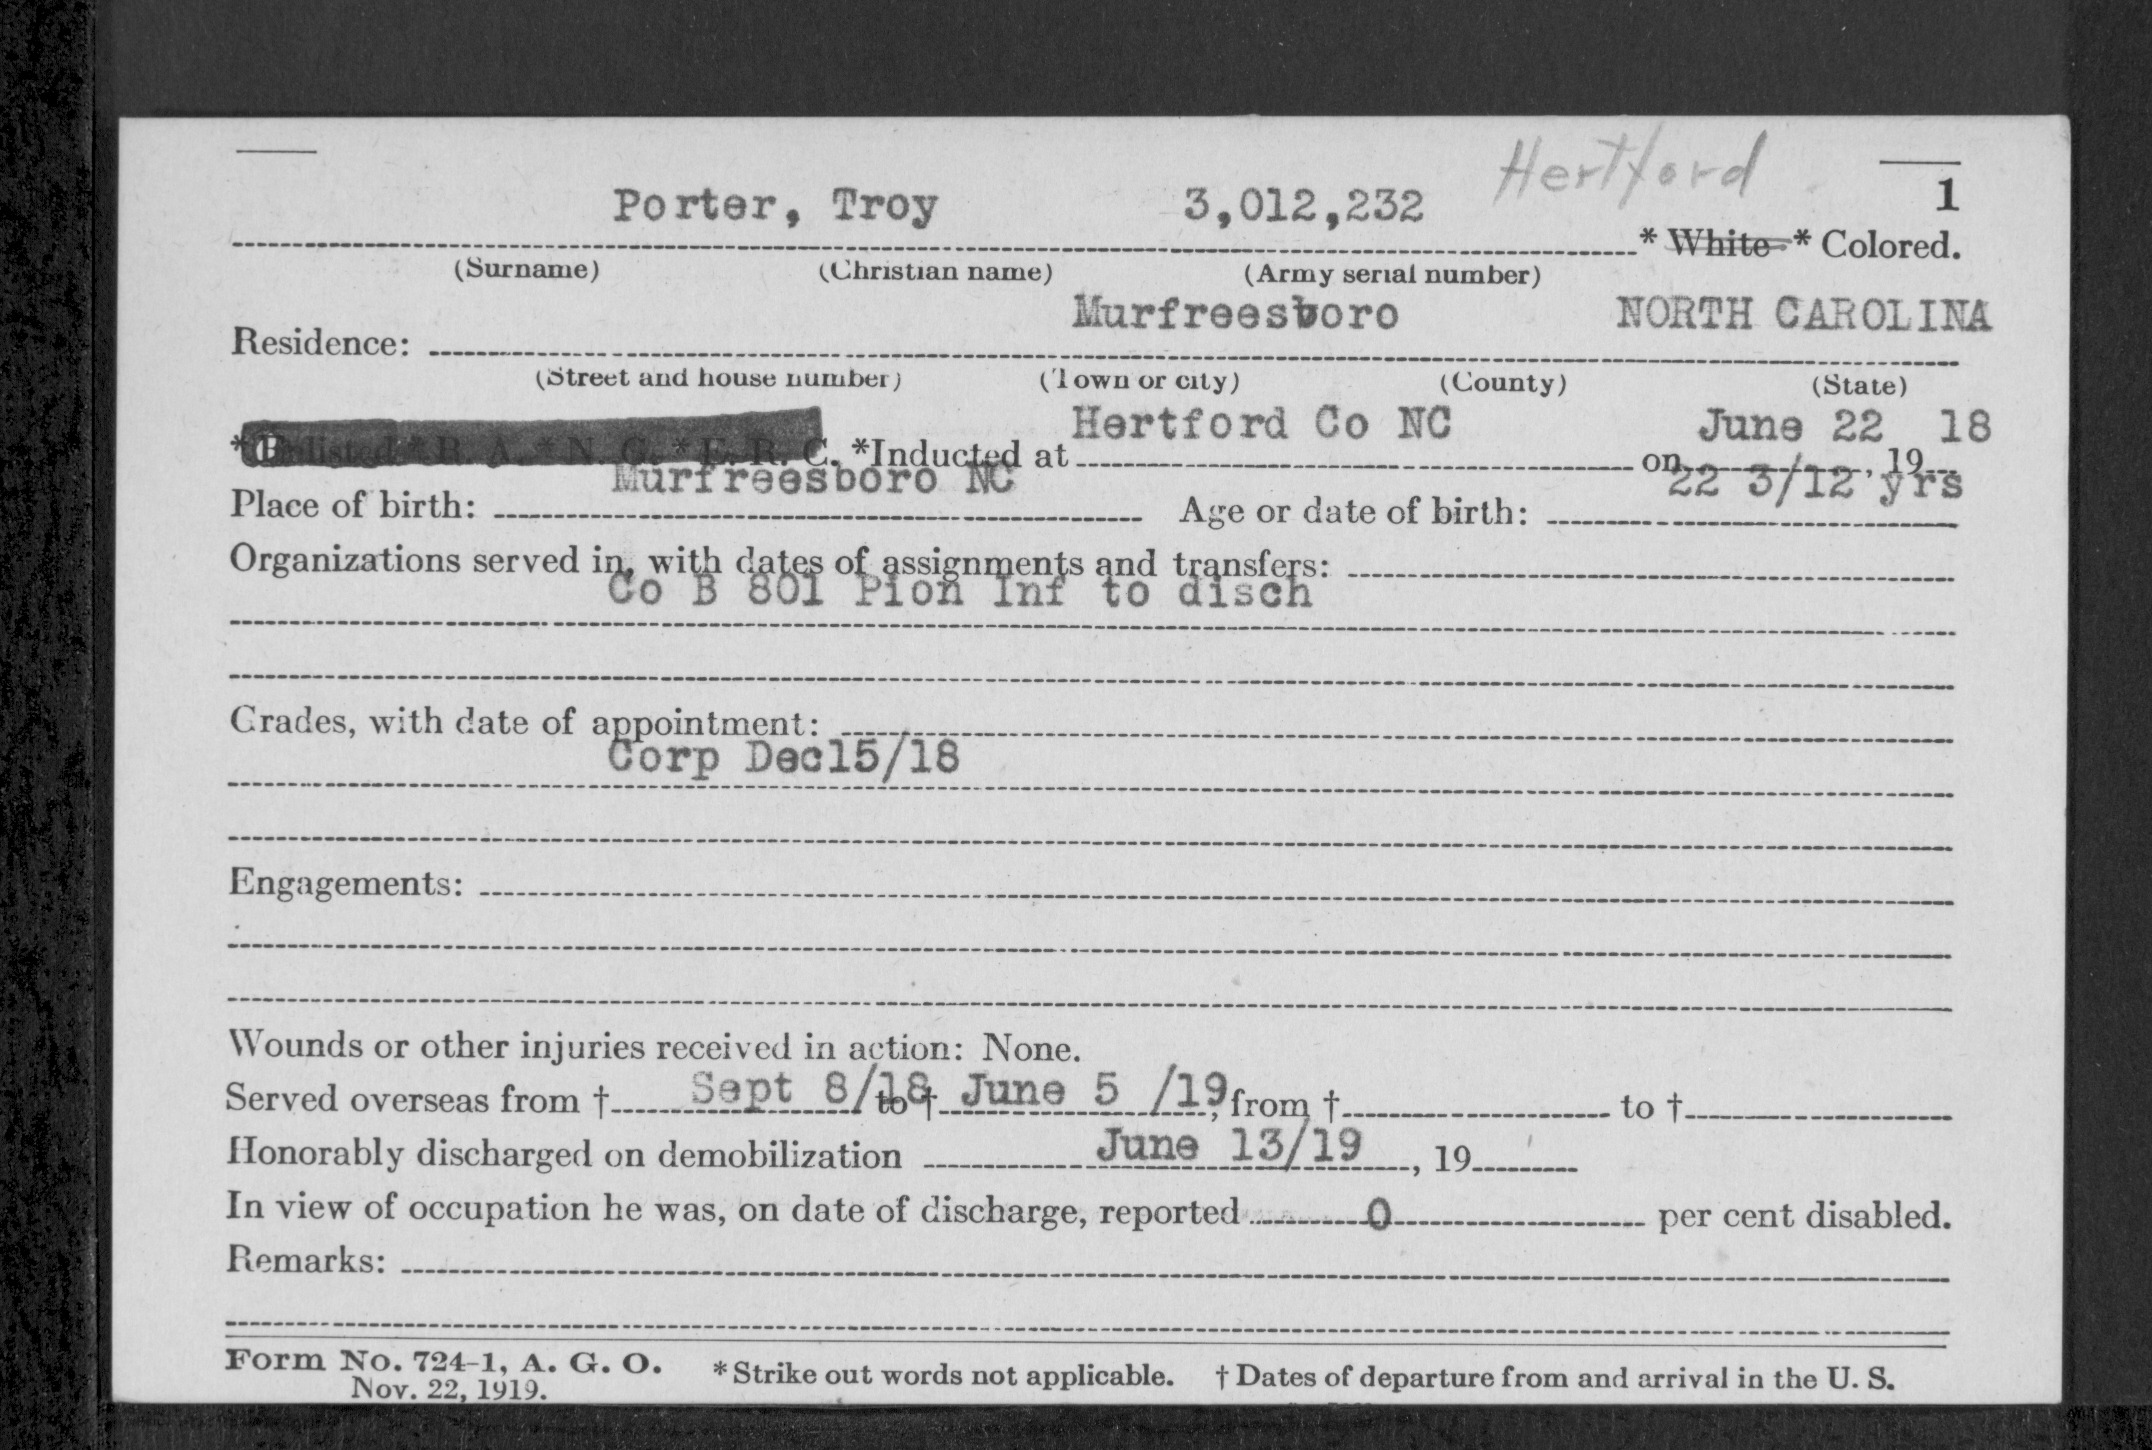 Hertford
Porter, Troy 3,012,232 1
* White * Colored.
(Surname) (Christian name) (Army serial number)
Murfreesboro NORTH CAROLINA
Residence:
(Street and house number) (Town or city) (County) (State)
Hertford Co NC June 22 18
*Enlisted * R. A. * N. G. * E. R. C. *Inducted at on , 19
Murfreesboro NC 22 3/12 yrs
Place of birth: Age or date of birth:
Organizations served in, with dates of assignments and transfers:
Co B 801 Pion Inf to disch
Grades, with date of appointment:
Corp Dec15/18
Engagements:
Wounds or other injuries received in action: None.
Served overseas from † Sept 8/18 to † June 5 /19, from † to †
Honorably discharged on demobilization June 13/19, 19
In view of occupation he was, on date of discharge, reported 0 per cent disabled.
Remarks:
Form No. 724-1, A. G. O. * Strike out words not applicable. † Dates of departure from and arrival in the U. S.
Nov. 22, 1919.